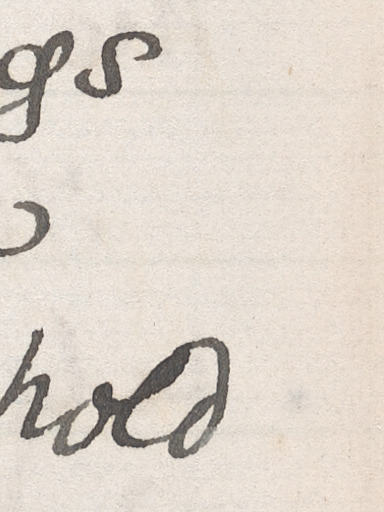 gs
hold